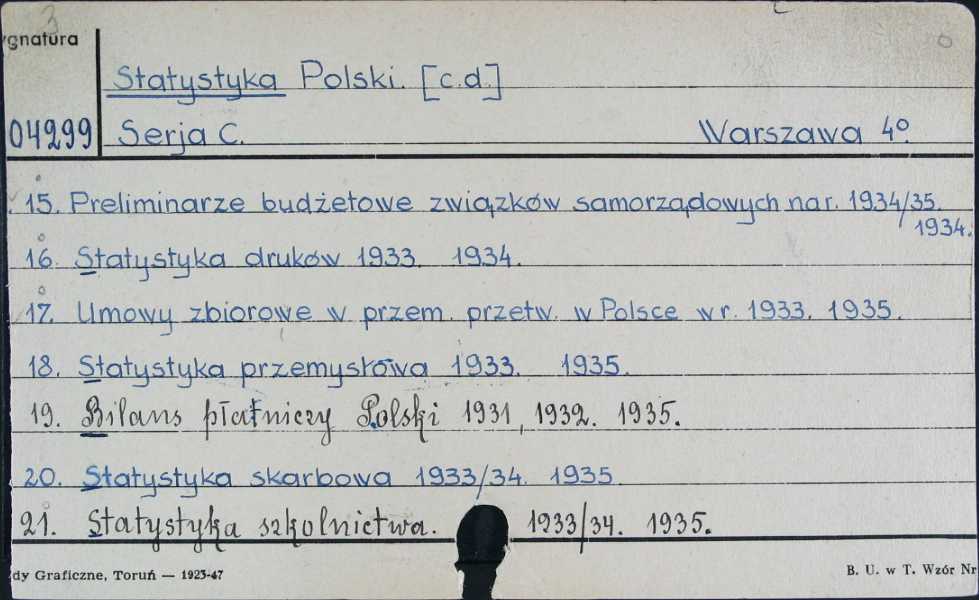 3
ygnatura
Statystyka Polski. [c.d.]
04299 Serja C. Warszawa 4º.
15. Preliminarze budżetowe związków samorządowych na r. 1934/35.
1934.
16. Statystyka druków 1933. 1934.
17. Umowy zbiorowe w przem. przetw. w Polsce w r. 1933. 1935.
18. Statystyka przemysłowa 1933. 1935.
19. Bilans płatniczy Polski 1931, 1932. 1935.
20. Statystyka skarbowa 1933/34. 1935
21. Statystyka szkolnictwa. 1933/34. 1935.
dy Graficzne, Toruń — 1923-47 B. U. w T. Wzór Nr